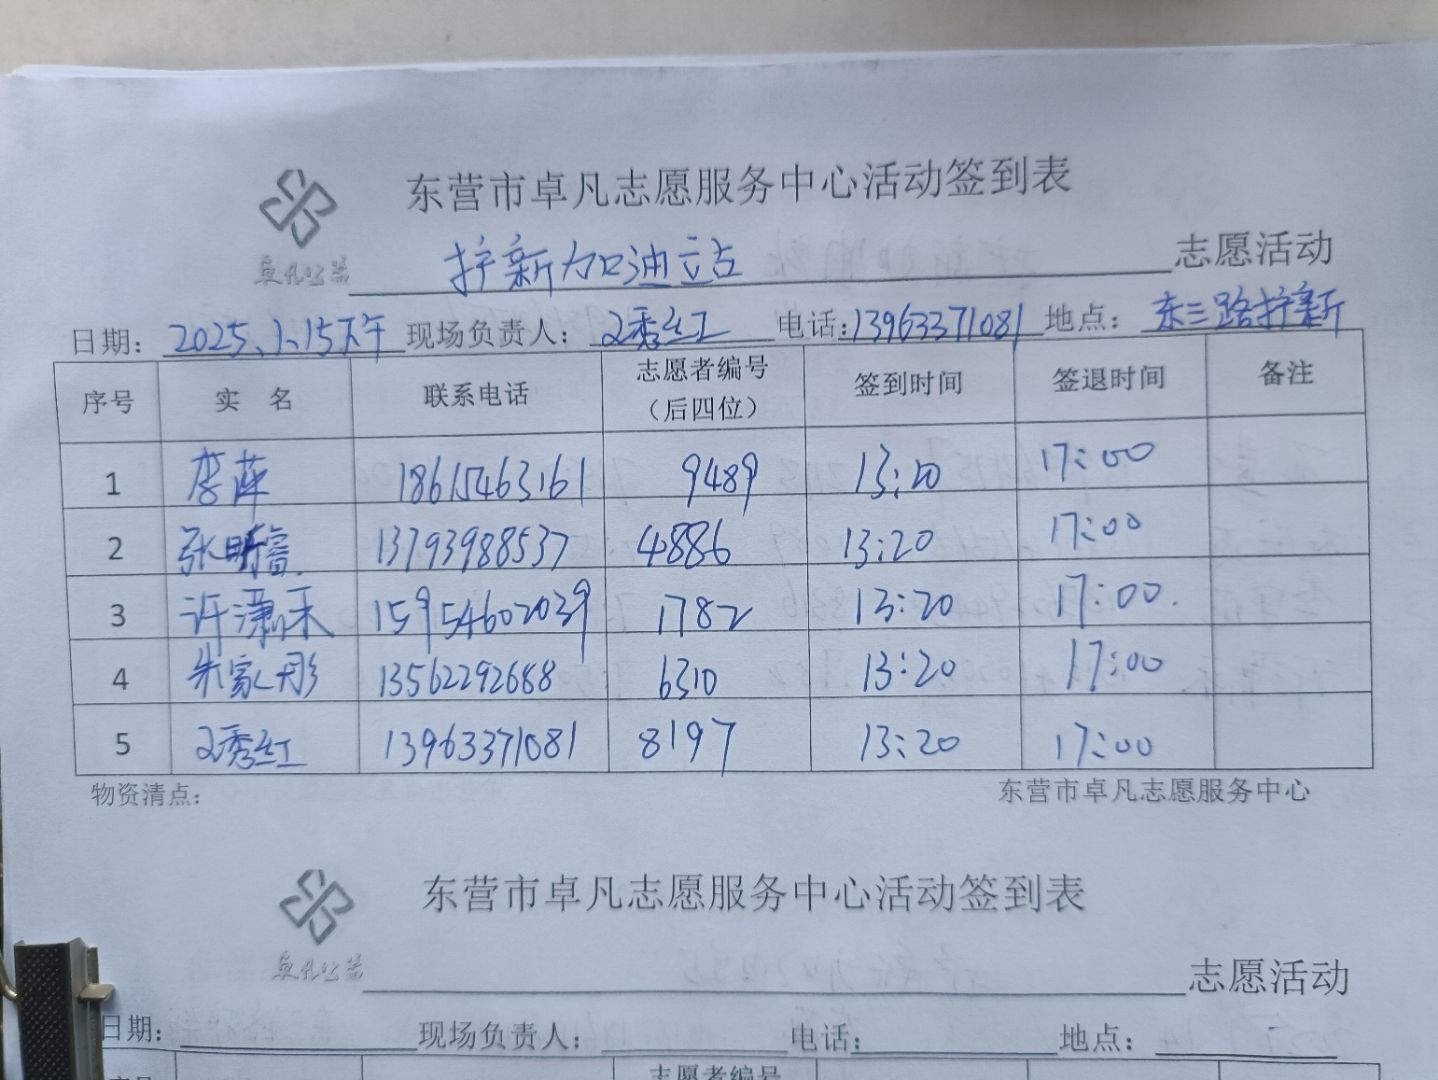 东营市卓凡志愿服务中心活动签到表
卓凡公益
护新加油立占 志愿活动
日期：2025、1、15下午 现场负责人：王秀红 电话：13963371081 地点：东三路护新
序号 实 名 联系电话 志愿者编号（后四位） 签到时间 签退时间 备注
1 李萍 18615463161 9489 13:20 17:00
2 张晴睿 13793988537 4886 13:20 17:00
3 许潇禾 15954602039 1782 13:20 17:00
4 朱家彤 13562292688 6310 13:20 17:00
5 王秀红 13963371081 8197 13:20 17:00
物资清点： 东营市卓凡志愿服务中心
东营市卓凡志愿服务中心活动签到表
卓凡公益
志愿活动
日期： 现场负责人： 电话： 地点：
序号 志愿者编号